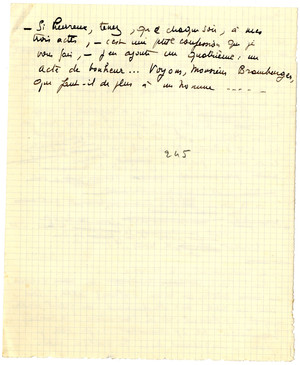 – Si heureux, tenez, que chaque soir, à mes
trois actes, – c'est une petite confession que je
vous fais, – j'en ajoute un quatrième, un
acte de bonheur... Voyons, Monsieur Bramburger,
que faut-il de plus à un homme .....
245